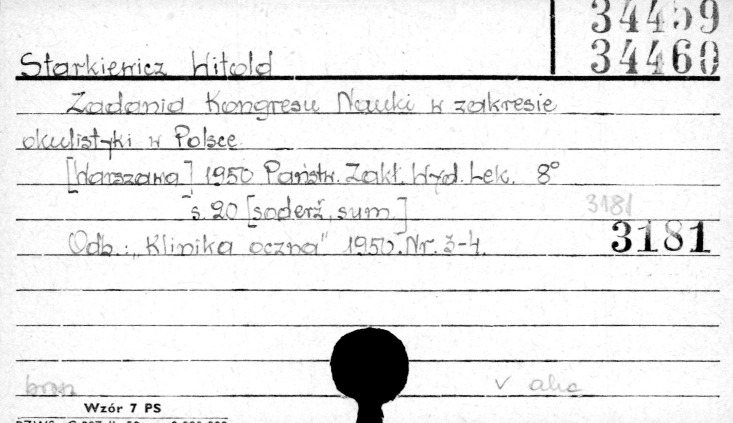 34459
34460
Starkiewicz Witold
Zadania Kongresu Nauki w zakresie
okulistyki w Polsce.
[Warszawa] 1950 Państw. Zakł. Wyd. Lek. 8°
s. 20 [soderž, sum.]
3181
Odb.: „Klinika oczna" 1950. Nr. 3-4.
3181
v
Wzór 7 PS